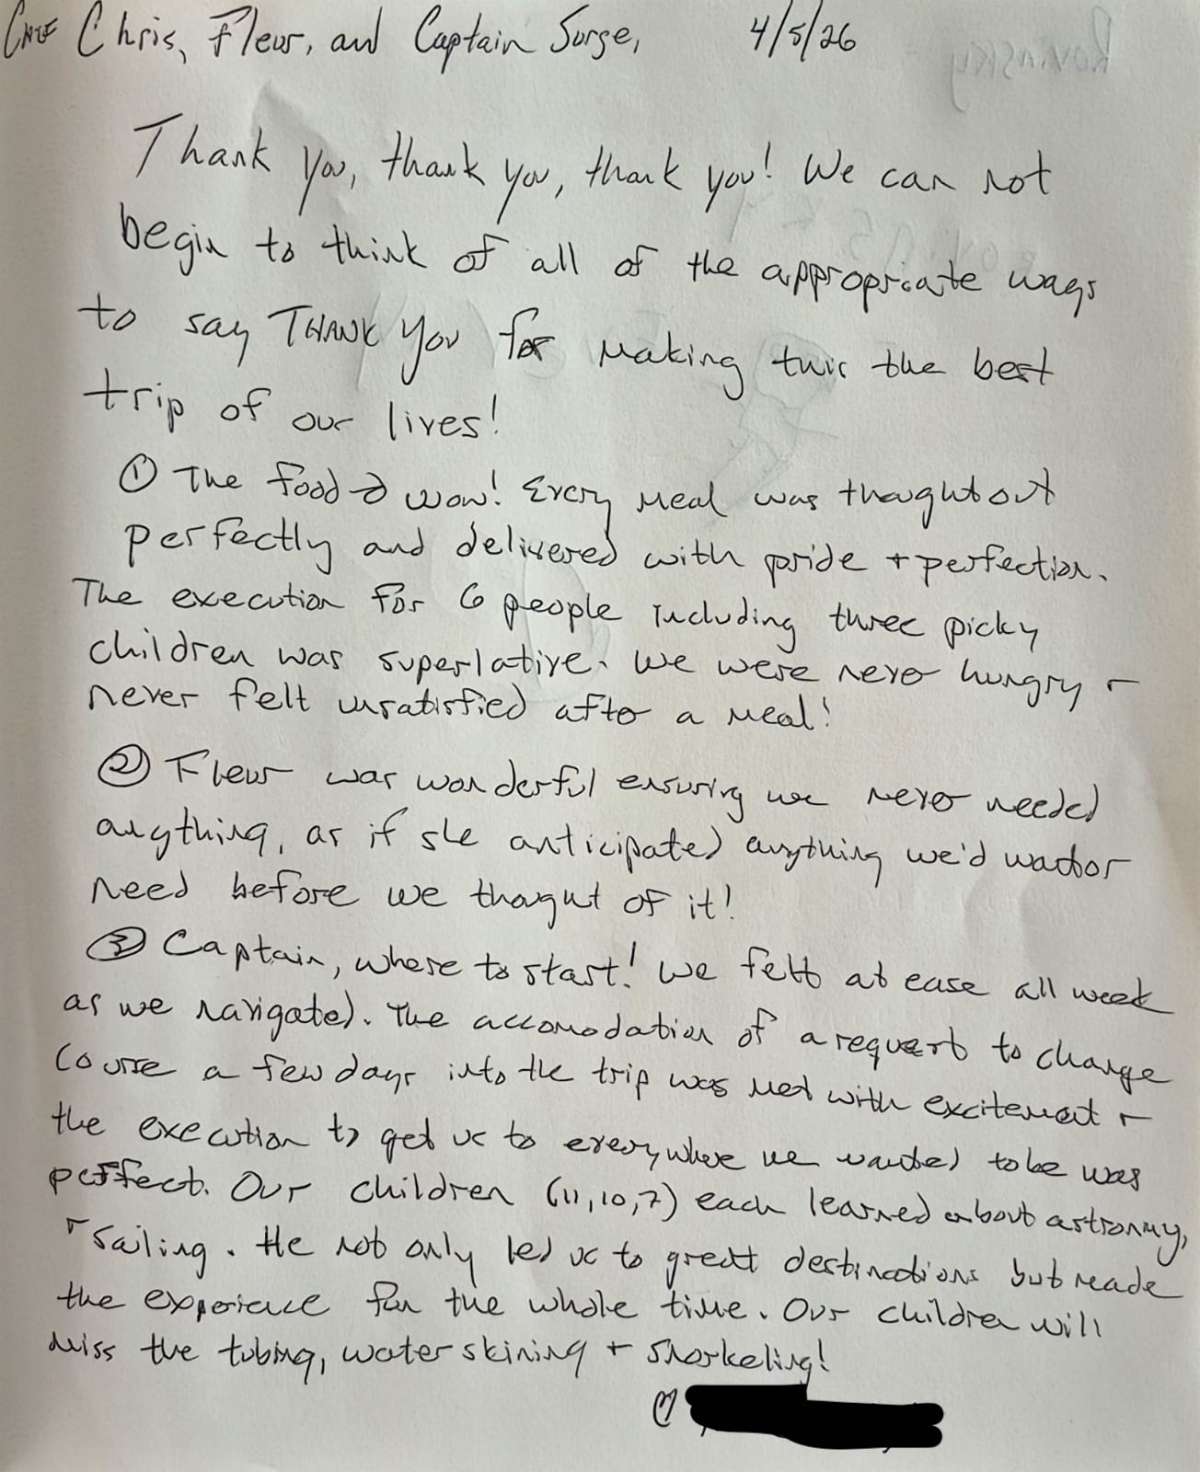 Chef Chris, Fleur, and Captain Surge, 4/5/26
Thank you, thank you, thank you! We can not
begin to think of all of the appropriate ways
to say THANK YOU for making this the best
trip of our lives!
① The food → wow! Every meal was thought out
perfectly and delivered with pride + perfection.
The execution for 6 people including three picky
children was superlative. We were never hungry +
never felt unsatisfied after a meal!
② Fleur was wonderful ensuring we never needed
anything, as if she anticipated anything we'd want or
need before we thought of it!
③ Captain, where to start! We felt at ease all week
as we navigated. The accomodation of a request to change
course a few days into the trip was met with excitement +
the execution to get us to everywhere we wanted to be was
perfect. Our children (11, 10, 7) each learned about astronmy,
+ sailing. He not only led us to great destinations but made
the experience fun the whole time. Our children will
miss the tubing, water skining + snorkeling!
♡